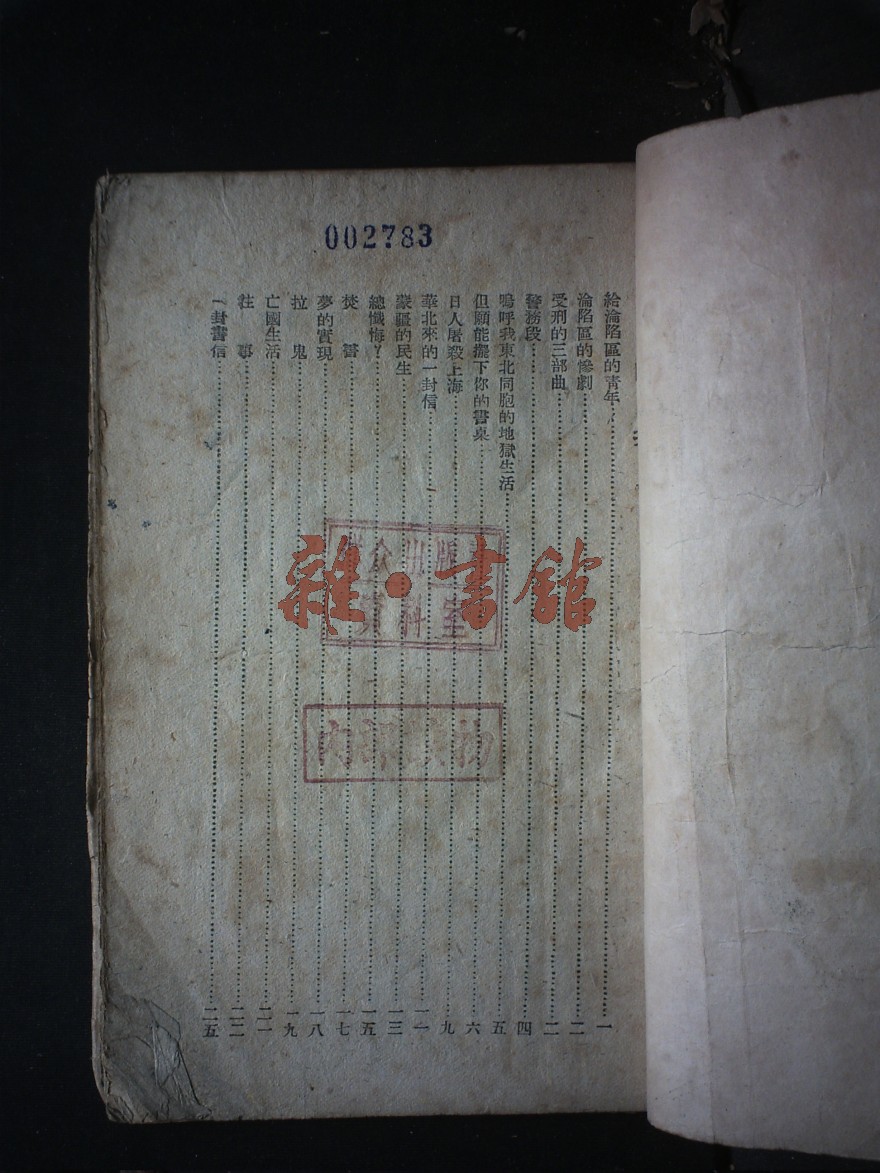 002783
給淪陷區的青年……一
淪陷區的慘劇……二
受刑的三部曲……二
警務段……四
嗚呼我東北同胞的地獄生活……五
但願能擺下你的書桌……六
日人屠殺上海……九
華北來的一封信……一一
蒙疆的民生……一三
總懺悔?……一五
焚書……一七
夢的實現……一八
拉鬼……一九
亡國生活……二一
往事……二二
一封書信……二五
众出版
資料室
内部
雜·書館